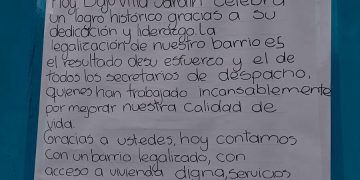 Hoy Bajo Villa Jardín celebra
un logro histórico gracias a su
dedicación y liderazgo. La
legalización de nuestro barrio es
el resultado de su esfuerzo y el de
todos los secretarios de despacho,
quienes han trabajado incansablemente
por mejorar nuestra calidad de
vida.
Gracias a ustedes, hoy contamos
con un barrio legalizado, con
acceso a vivienda digna, servicios